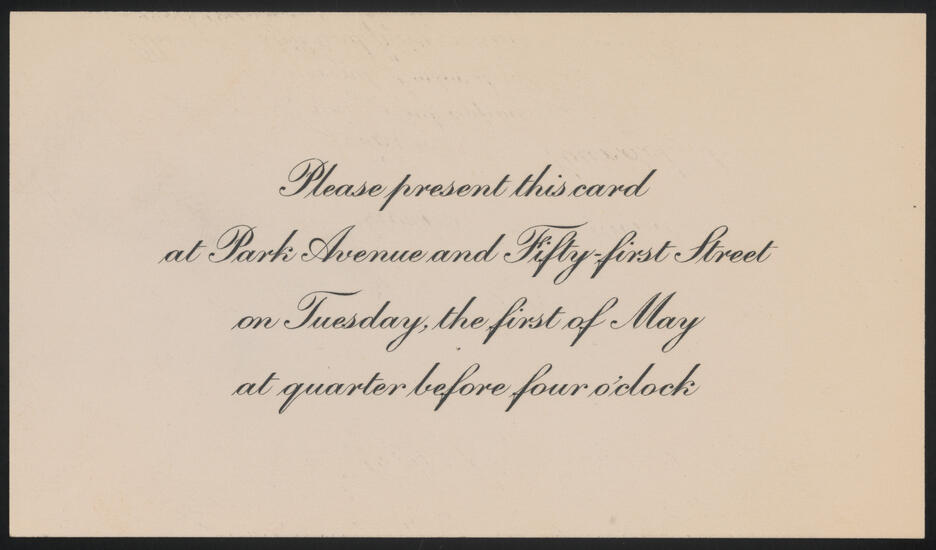 Please present this card
at Park Avenue and Fifty-first Street
on Tuesday, the first of May
at quarter before four o'clock